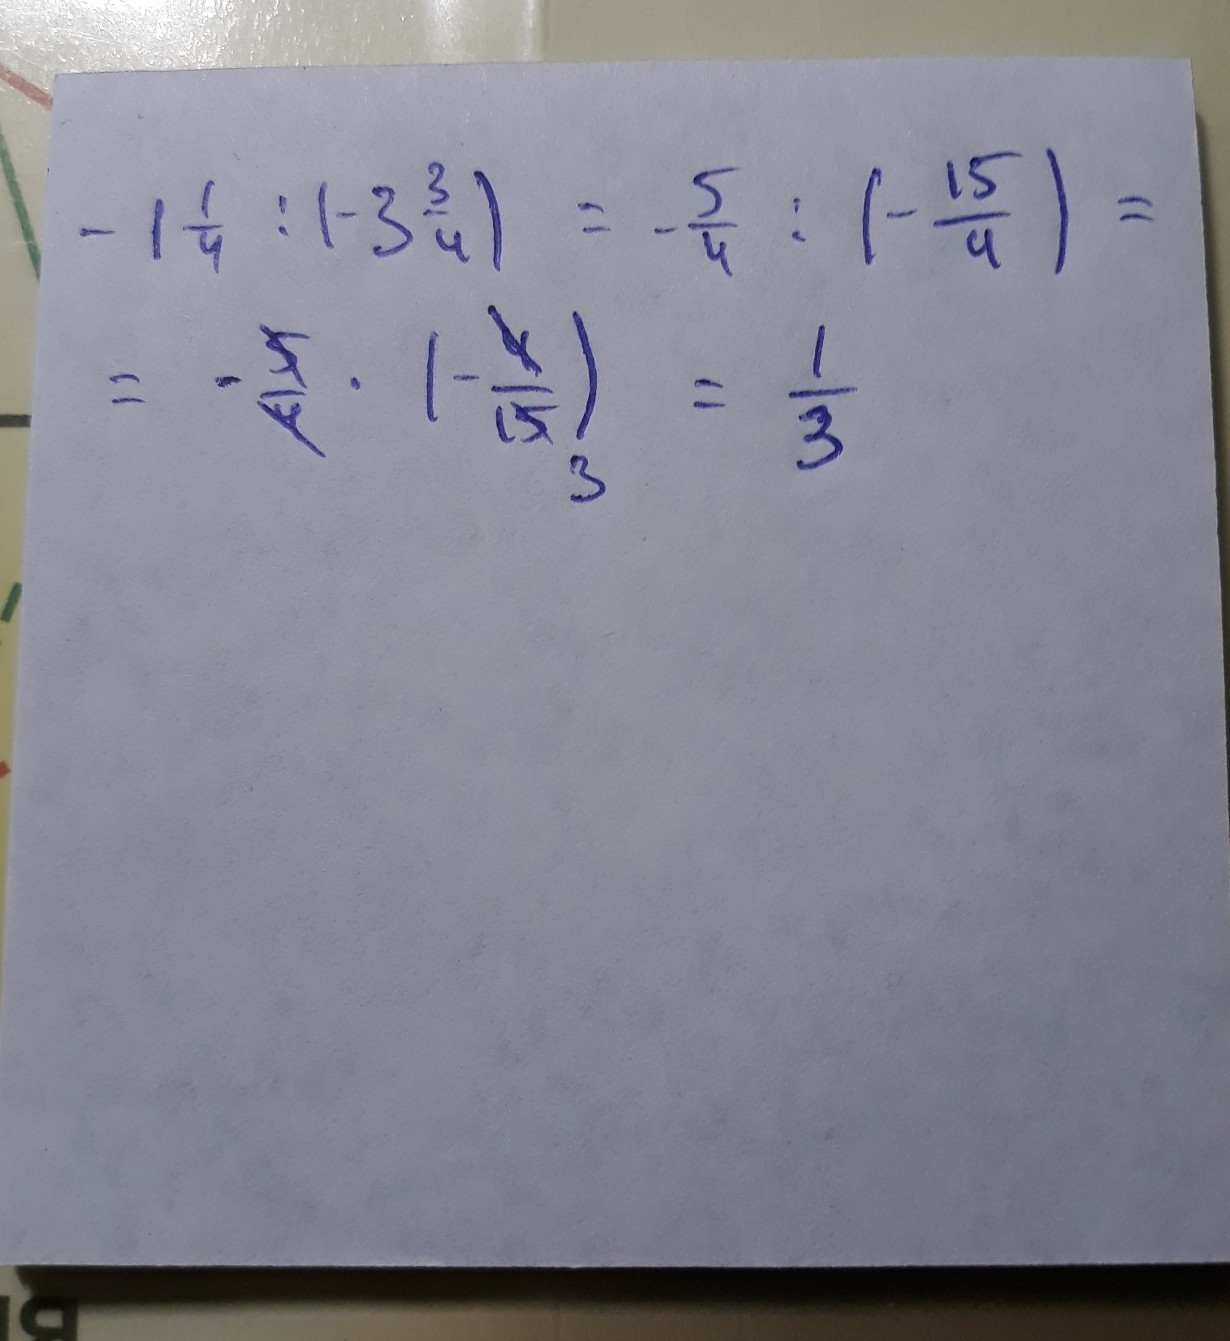 - 1 1/4 : (-3 3/4) = - 5/4 : (- 15/4) =
= - 5/4 · (- 4/15) = 1/3
3